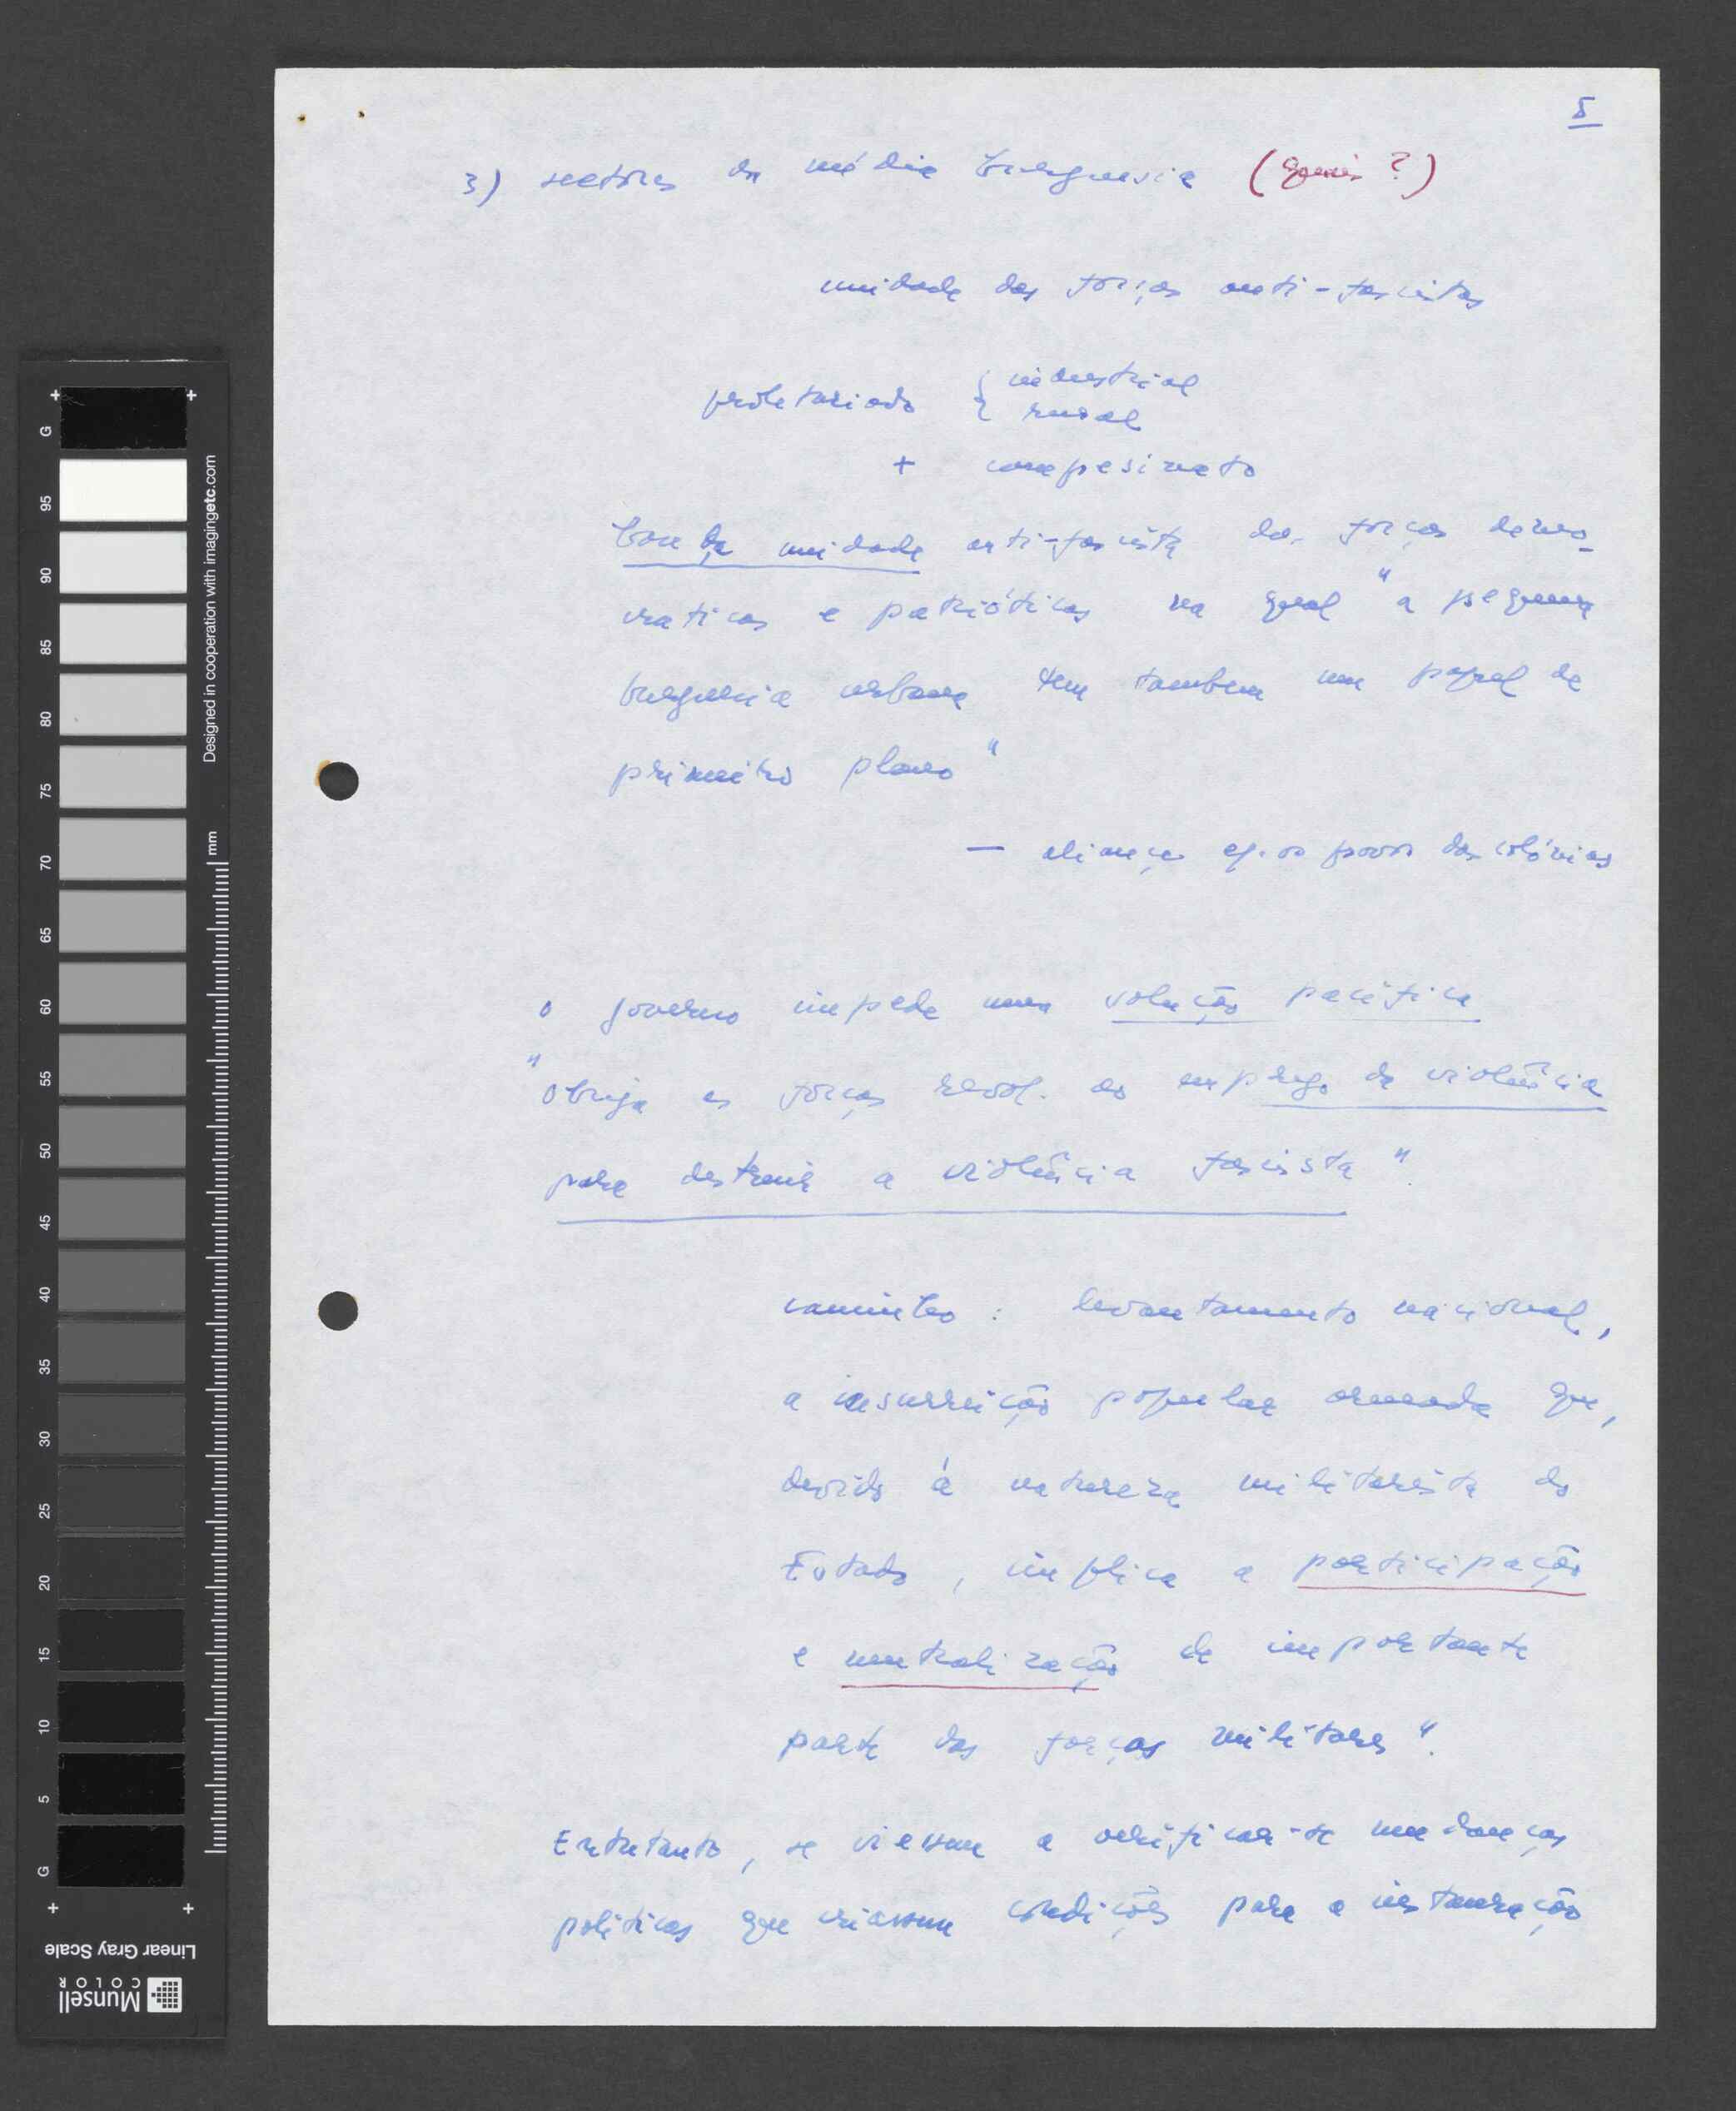 5
3) sectores da média burguesia (quais?)
unidade das forças anti-fascistas
proletariado { industrial
rural
+ campesinato
base da unidade anti-fascista das forças demo-
craticas e patrióticas na qual "a pequena
burguesia urbana tem tambem um papel de
primeiro plano"
— aliança c/. os povos das colónias
o governo impede uma solução pacífica
"obriga as forças revol. ao emprego da violência
para destruir a violência fascista".
caminho : levantamento nacional,
a insurreição popular armada que,
devido à natureza militarista do
Estado, implica a participação
e neutralização de importante
parte das forças militares".
Entretanto, se viessem a verificar-se mudanças
politicas que criassem condições para a instauração
G 95 90 85 80 75 70 65 60 55 50 45 40 35 30 25 20 15 10 5 G
Designed in cooperation with imagingetc.com
mm
Linear Gray Scale
Munsell
COLOR